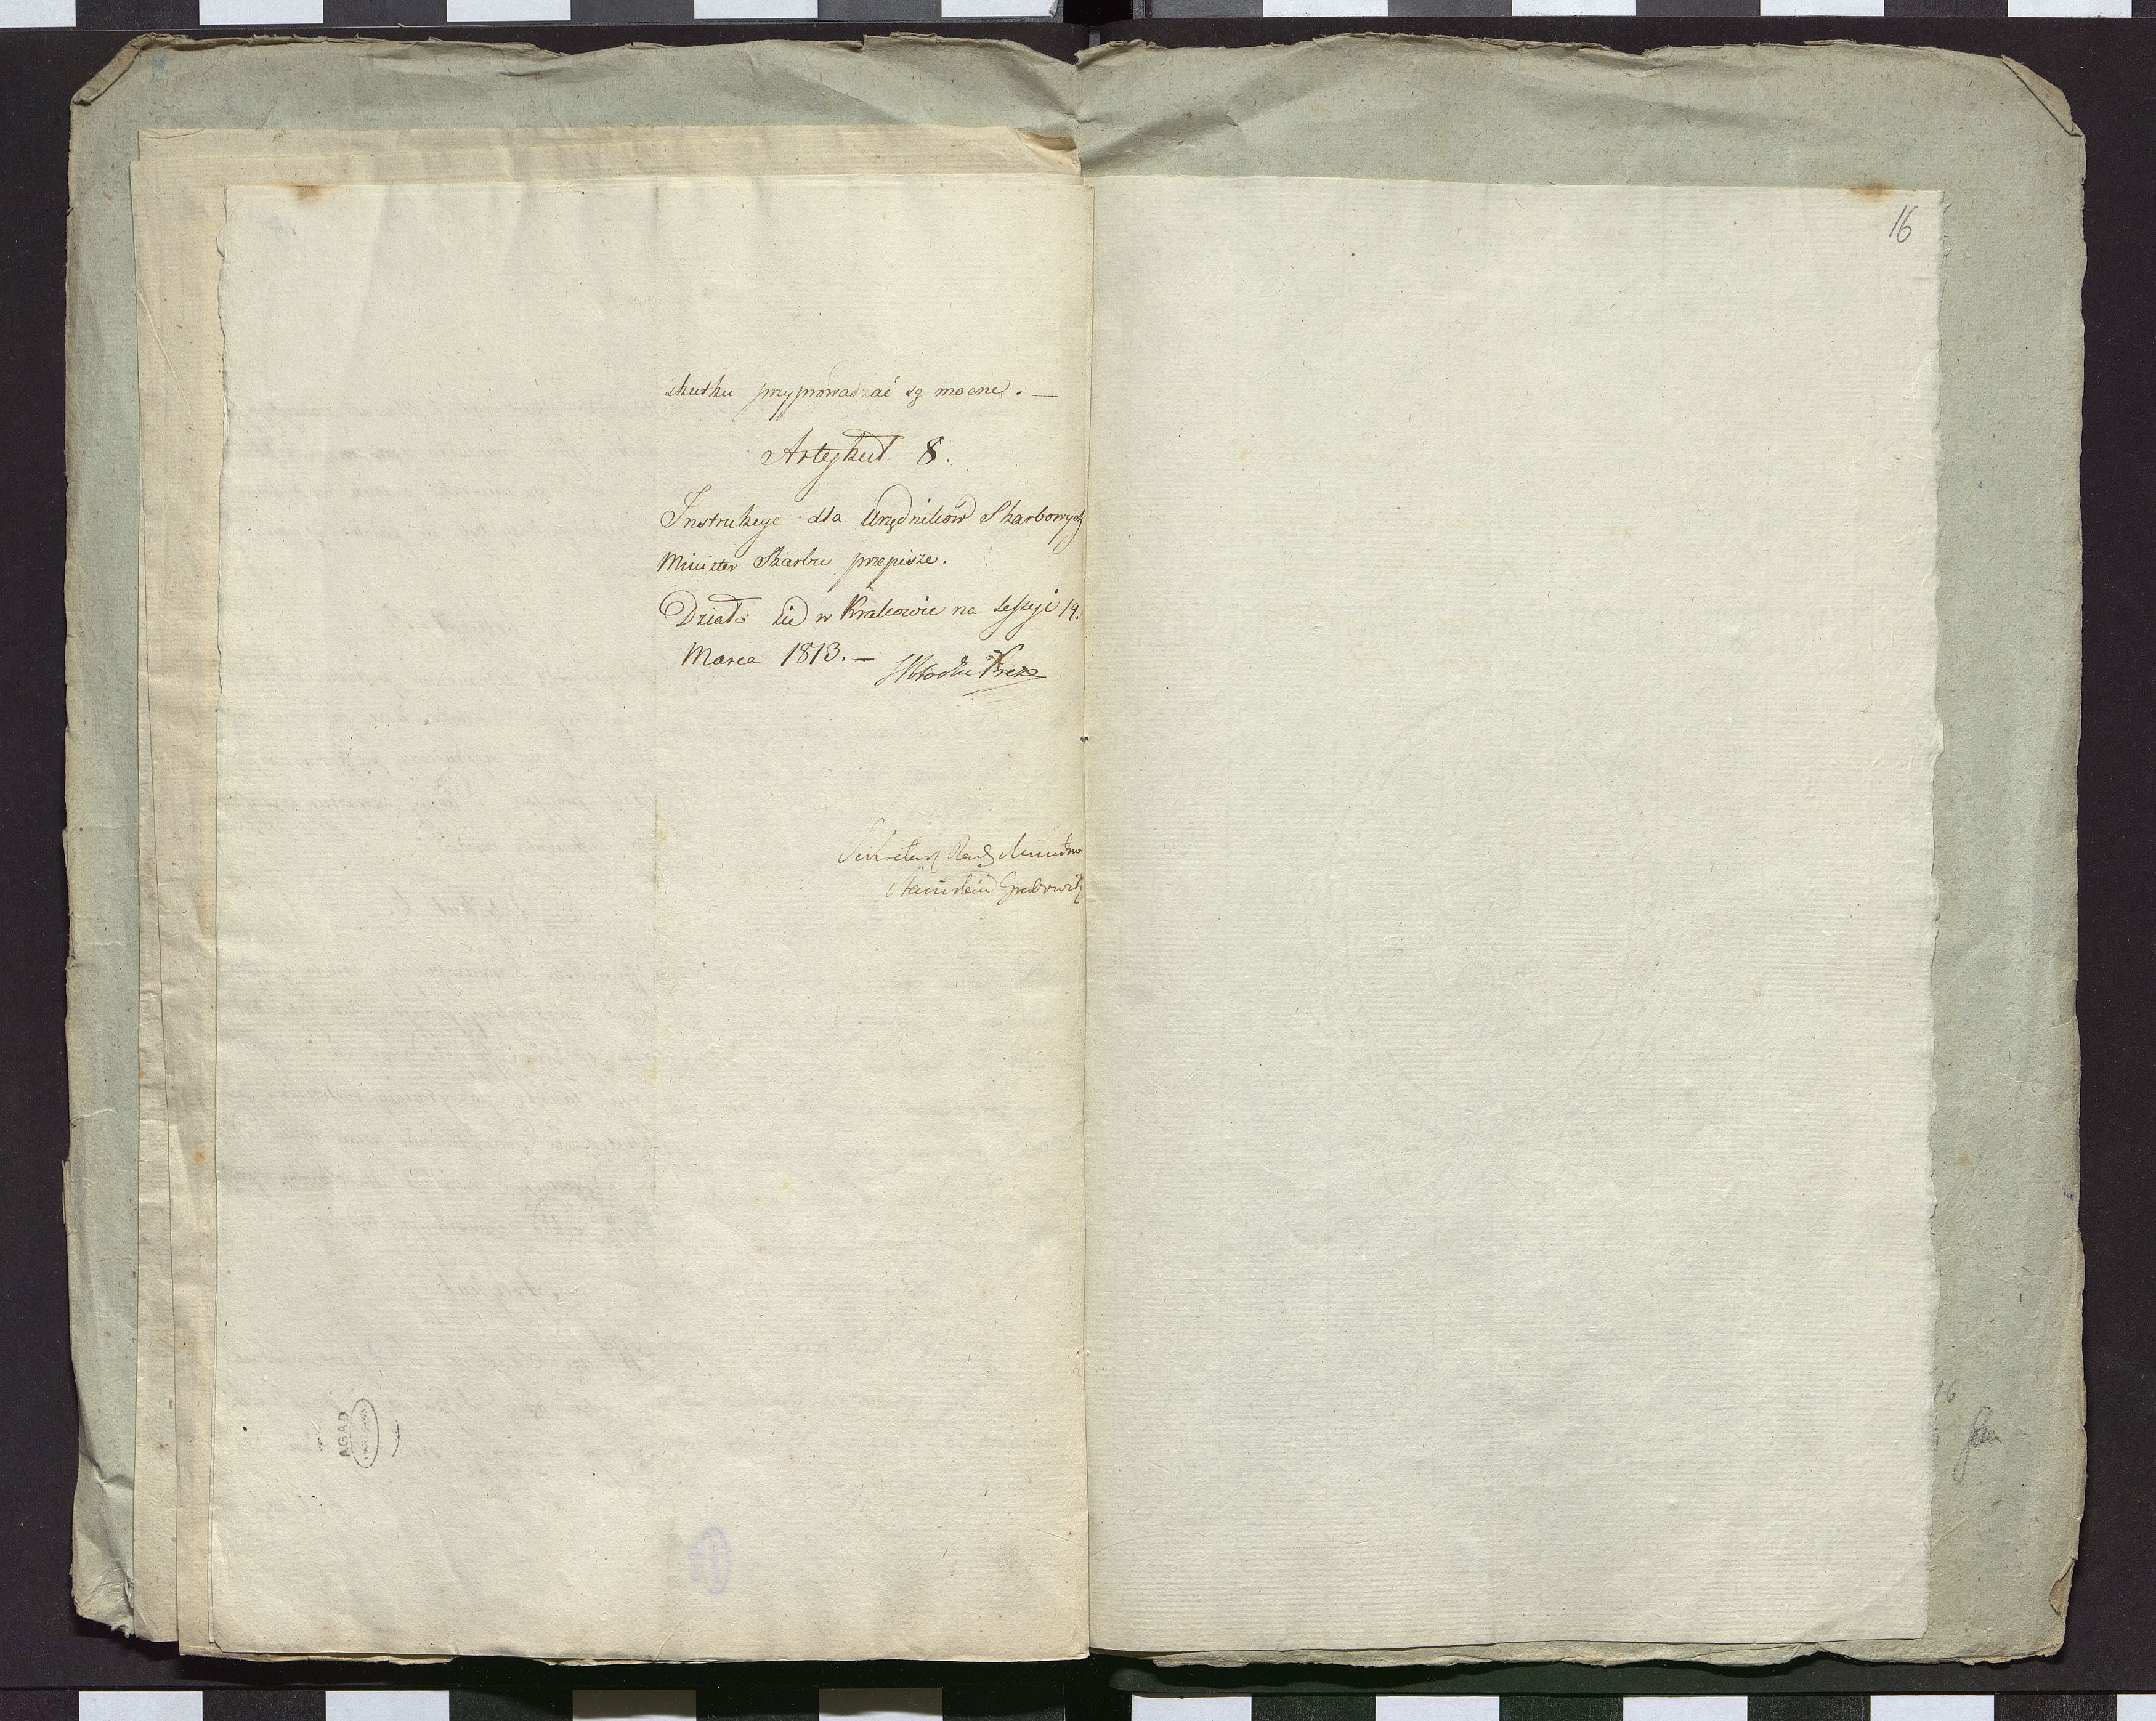 skutku przyprowadzać są mocne. —
Artykuł 8.
Instrukcye dla Urzędników Skarbowych
Minister Skarbu przepisze.
Działo się w Krakowie na Sessyi 19.
Marca 1813. —
Sekretarz Rady Ministrów
Stanisław Grabowski
16
AGAD